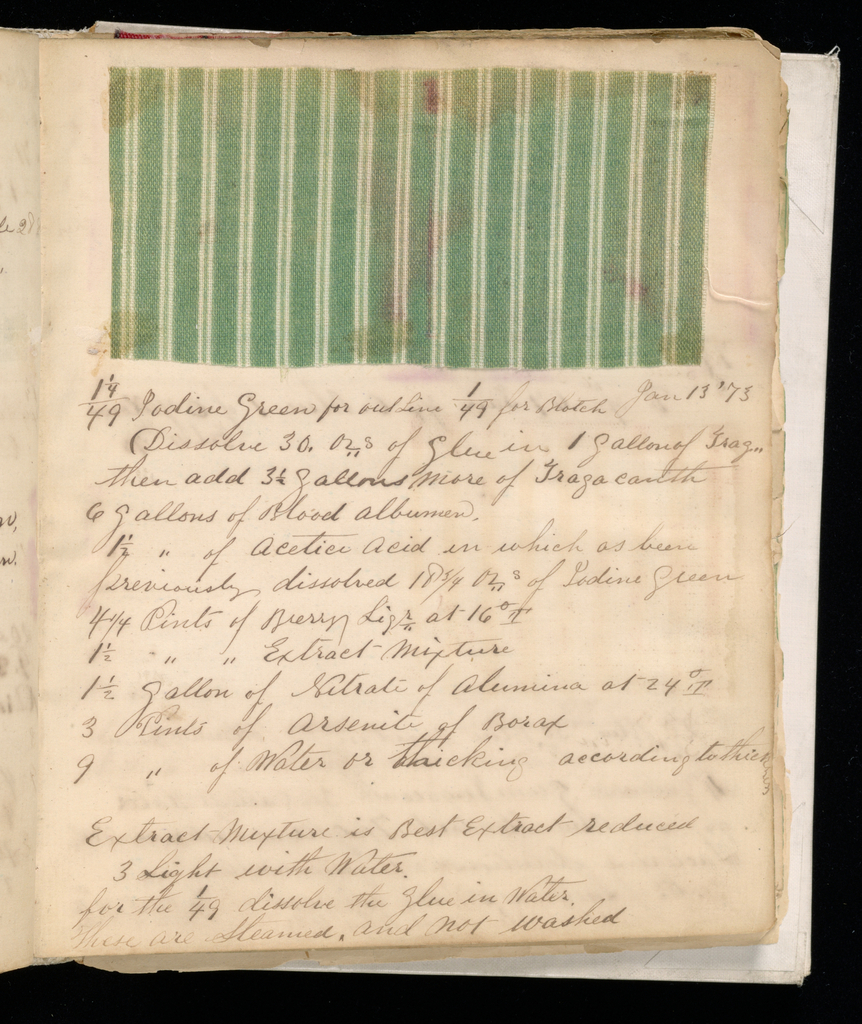 1 4/49 Iodine Green for outline 1/49 for Blotch Jan 13 '73
(Dissolve 30. Ozs of Glue in 1 gallon of Trag..
then add 3½ gallons more of Tragacanth
6 gallons of Blood albumen.
1½ " of Acetice Acid in which as been
previously dissolved 18¾ Ozs of Iodine Green
4¼ Pints of Berry Liqr at 16° T
1½ " " Extract Mixture
1½ gallon of Nitrate of Alumina at 24° T
3 Pints of Arsenite of Borax
9 " of Water or thicking according to thick
Extract Mixture is Best Extract reduced
3 Light with Water.
for the 1/49 dissolve the Glue in Water.
These are Steamed. and not washed